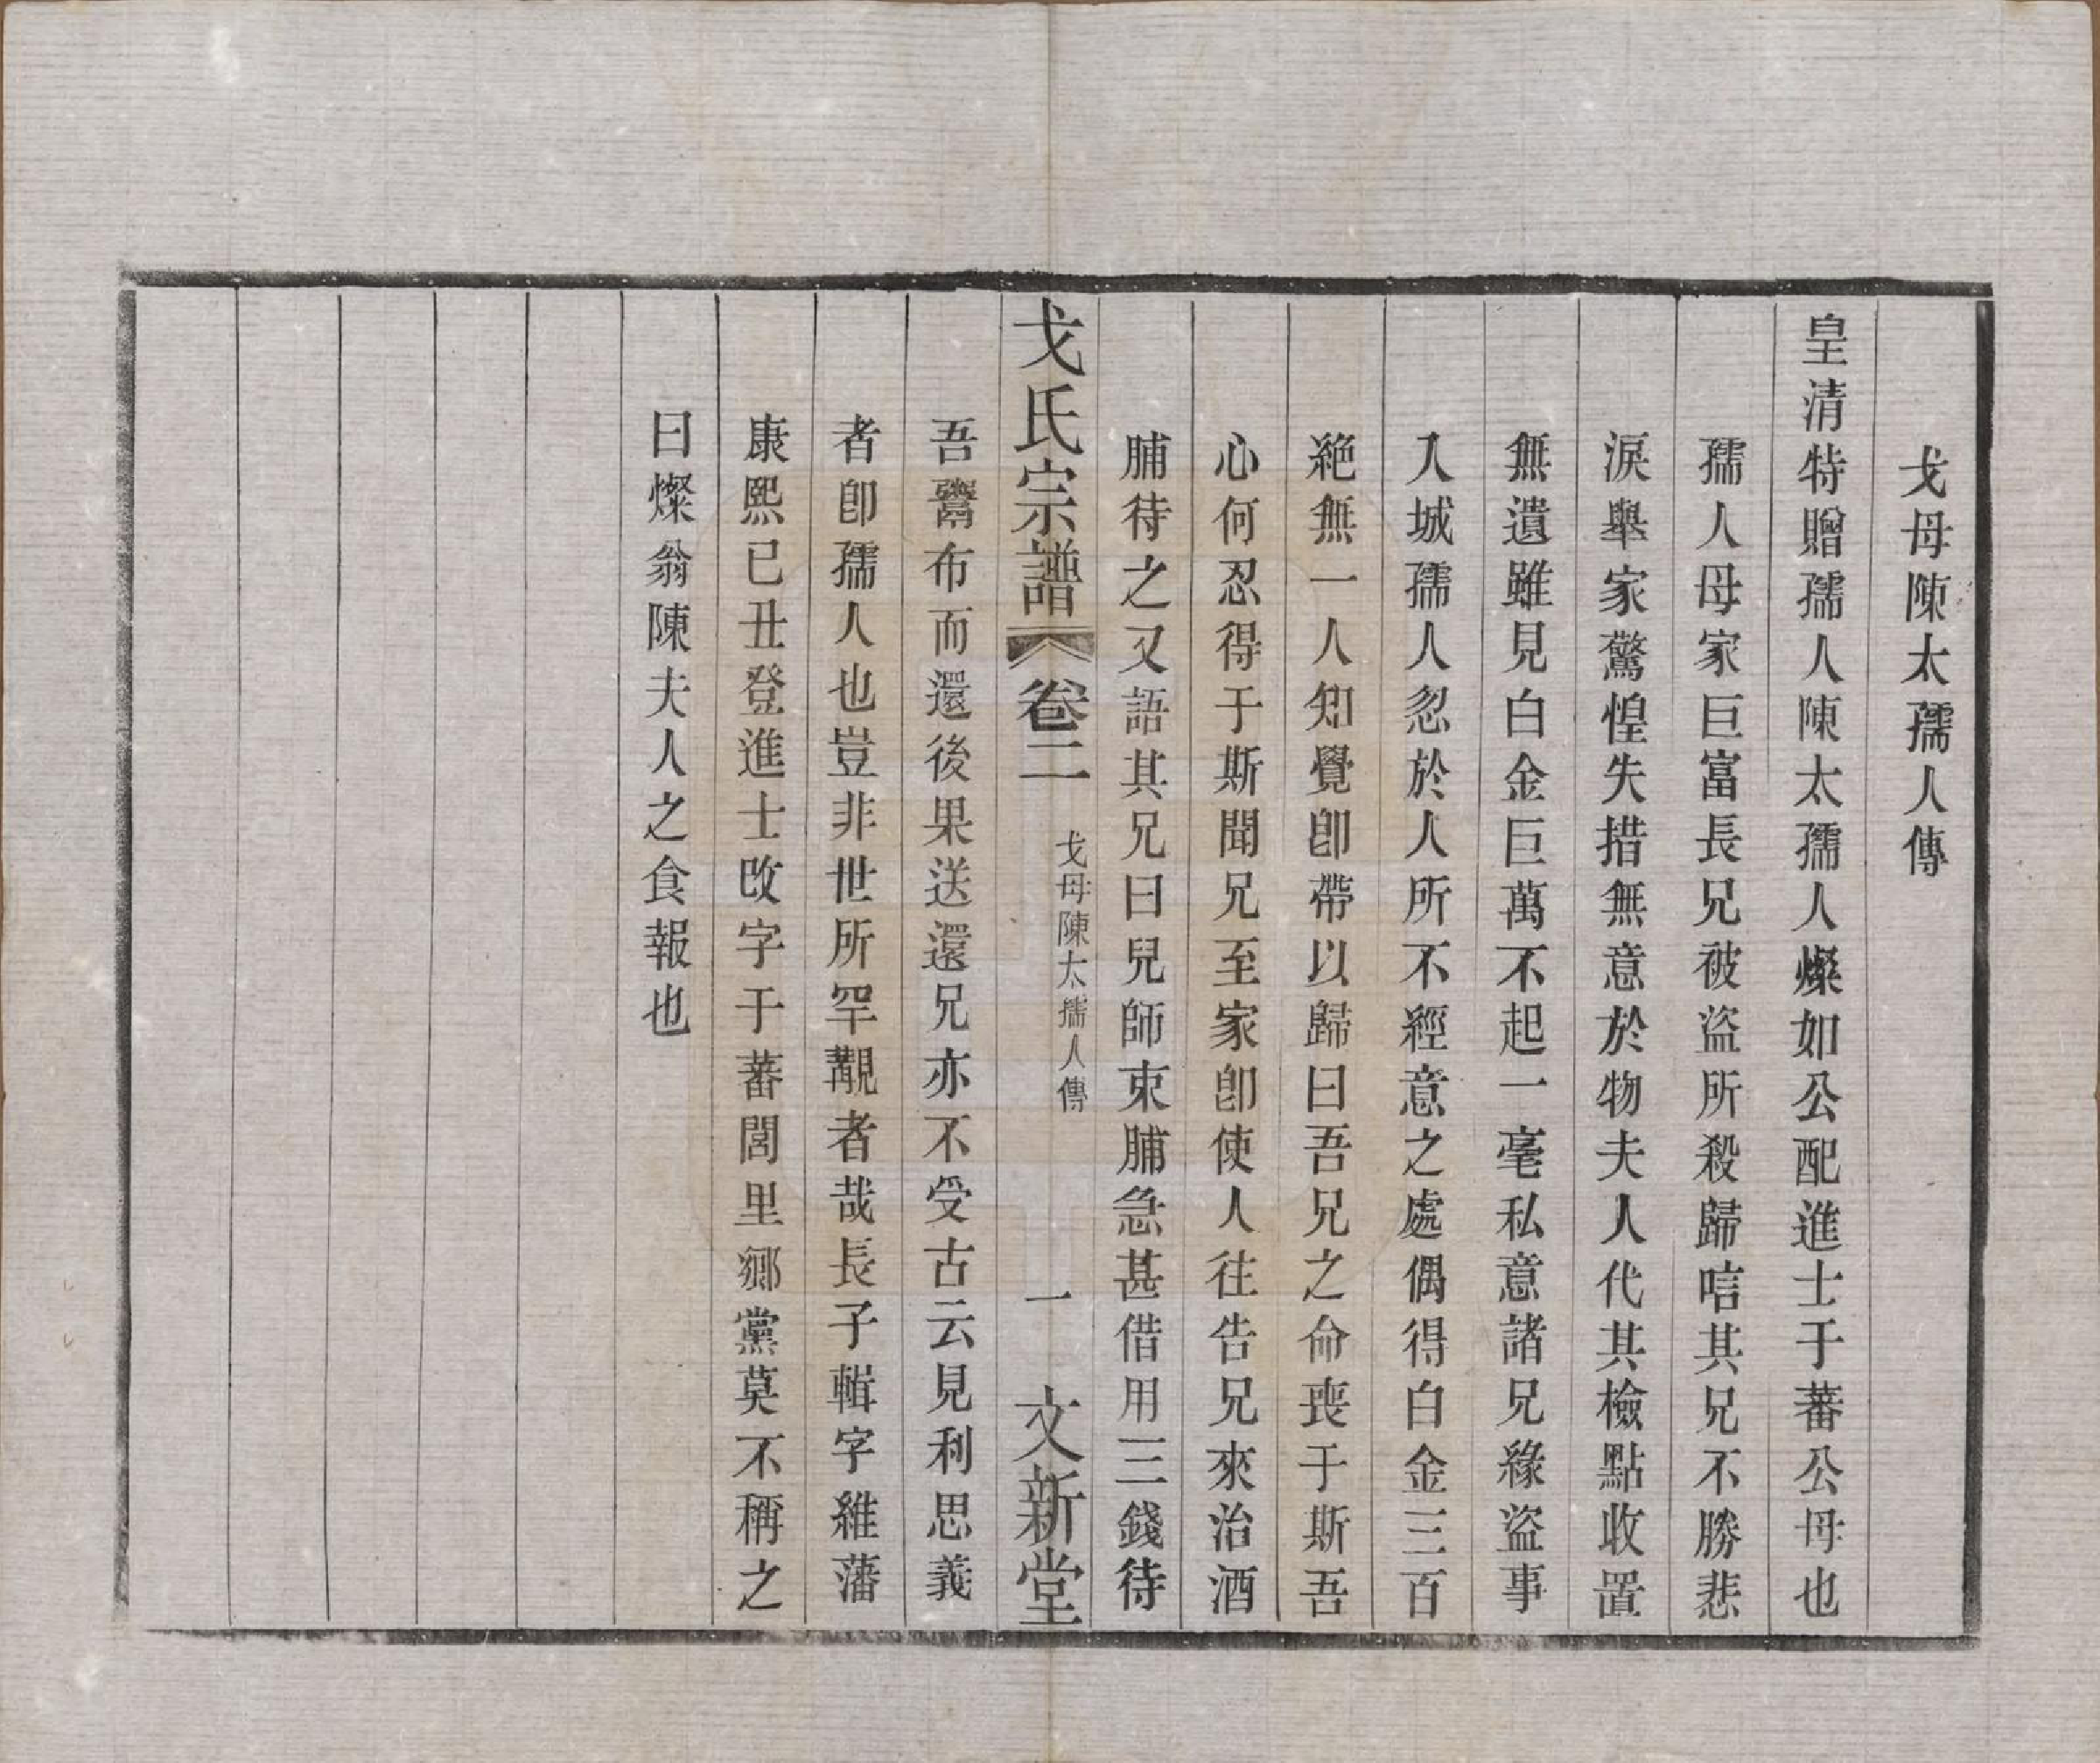 戈母陳太孺人傳
皇清特贈孺人陳太孺人燦如公配進士于蕃公母也
孺人母家巨富長兄被盜所殺歸唁其兄不勝悲
淚舉家驚惶失措無意於物夫人代其檢點收置
無遺雖見白金巨萬不起一毫私意諸兄緣盜事
入城孺人忽於人所不經意之處偶得白金三百
絶無一人知覺卽帶以歸曰吾兄之命喪于斯吾
心何忍得于斯聞兄至家卽使人往告兄來治酒
脯待之又語其兄曰兒師束脯急甚借用三錢待
戈氏宗譜 卷二 戈母陳太孺人傳 一 文新堂
吾鬻布而還後果送還兄亦不受古云見利思義
者卽孺人也豈非世所罕覯者哉長子輯字維藩
康熙已丑登進士改字于蕃閭里鄉黨莫不稱之
曰燦翁陳夫人之食報也